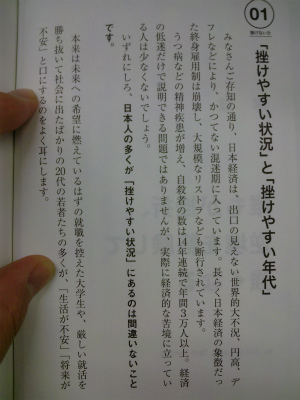 01
挫けない力
「挫けやすい状況」と「挫けやすい年代」
みなさんご存知の通り、日本経済は、出口の見えない世界的大不況、円高、デ
フレなどにより、かつてない混迷期に入っています。長らく日本経済の象徴だっ
た終身雇用制は崩壊し、大規模なリストラなども断行されています。
うつ病などの精神疾患が増え、自殺者の数は14年連続で年間3万人以上。経済
の低迷だけで説明できる問題ではありませんが、実際に経済的な苦境に立ってい
る人は少なくないでしょう。
いずれにしろ、日本人の多くが「挫けやすい状況」にあるのは間違いないこと
です。
本来は未来への希望に燃えているはずの就職を控えた大学生や、厳しい就活を
勝ち抜いて社会に出たばかりの20代の若者たちの多くが、「生活が不安」「将来が
不安」と口にするのをよく耳にします。